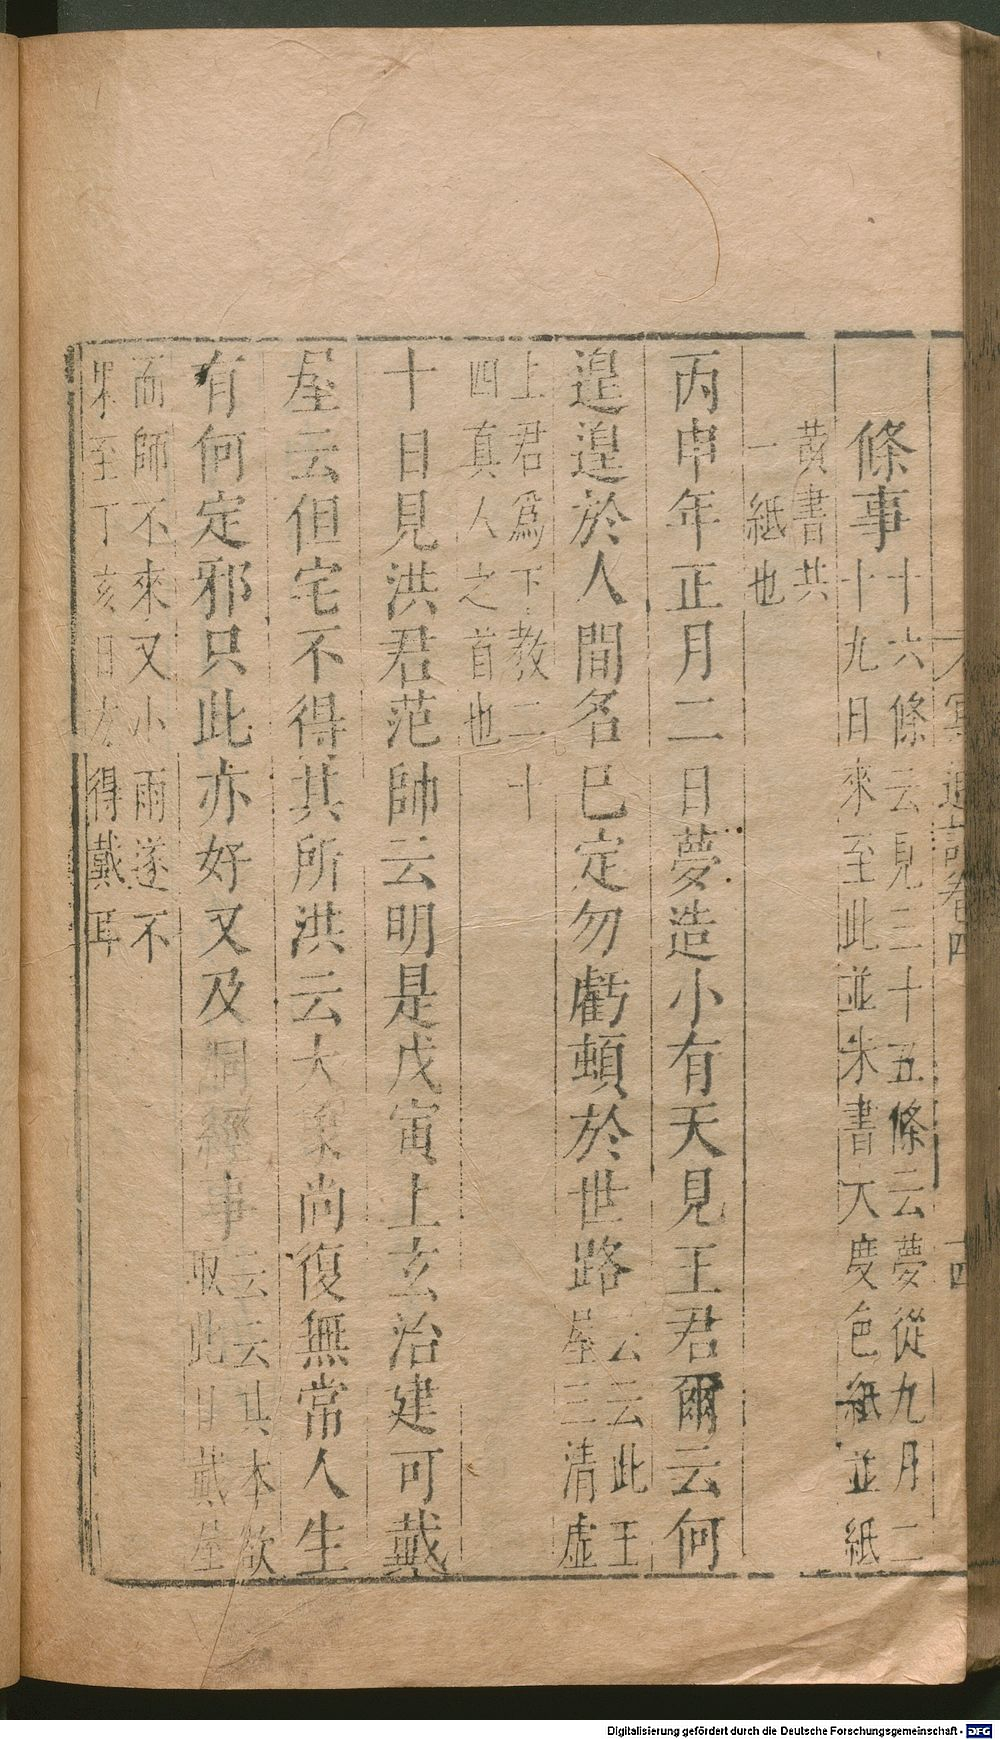 冥通記卷四
十四
條事十六條云見三十五條云夢從九月二
十九日來至此並朱書大度色紙並紙
黃書共
一紙也
丙申年正月二日夢造小有天見王君爾云何
遑遑於人間名巳定勿虧頓於世路云云此王
屋三清虛
上君為下教二十
四真人之首也
十日見洪君范帥云明是戊寅上玄治建可戴
屋云但宅不得其所洪云大 尚復無常人生
有何定邪只此亦好又及洞經事云云其本欲
取此日戴屋
而師不來又小雨遂不
果至丁亥日方得戴耳
Digitalisierung gefördert durch die Deutsche Forschungsgemeinschaft - DFG